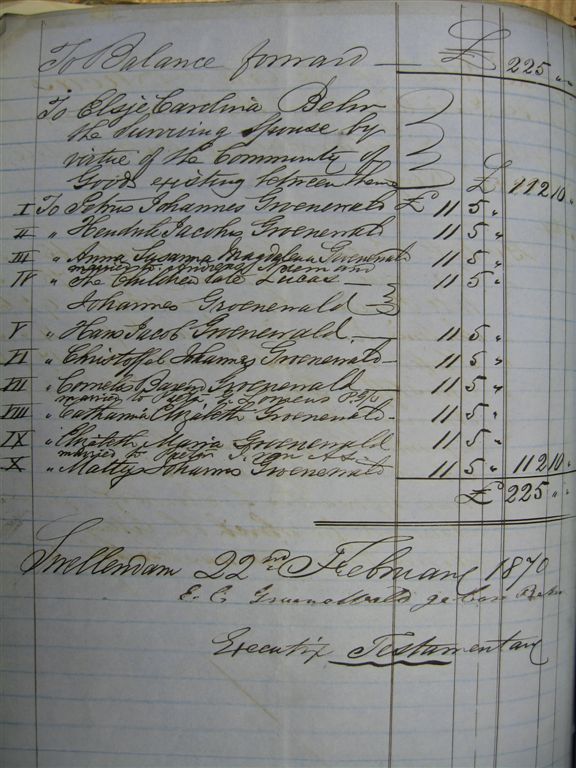 To Balance forward — £ 225 " "
To Elsje Carolina Behr
the Surviving Spouse by
virtue of the Community of
Goods existing between them £ 112 10 "
I To Petrus Johannes Groenewald £ 11 5 "
II " Hendrik Jacobus Groenewald 11 5 "
III " Anna Susanna Magdalena Groenewald 11 5 "
married to Andreas and
IV " The Children late Lucas — 11 5 "
Johannes Groenewald
V " Hans Jacob Groenewald — 11 5 "
VI " Christoffel Johannes Groenewald — 11 5 "
VII " Cornelis Groenewald — 11 5 "
married to
VIII " Catharina Elizabeth Groenewald - 11 5 "
IX " Elizabeth Maria Groenewald 11 5 "
married to van As
X " Mattys Johannes Groenewald 11 5 " 112 10 "
£ 225 " "
Swellendam 22nd February 1870
E. C. Groenewald geboren Behr
Executrix Testamentary